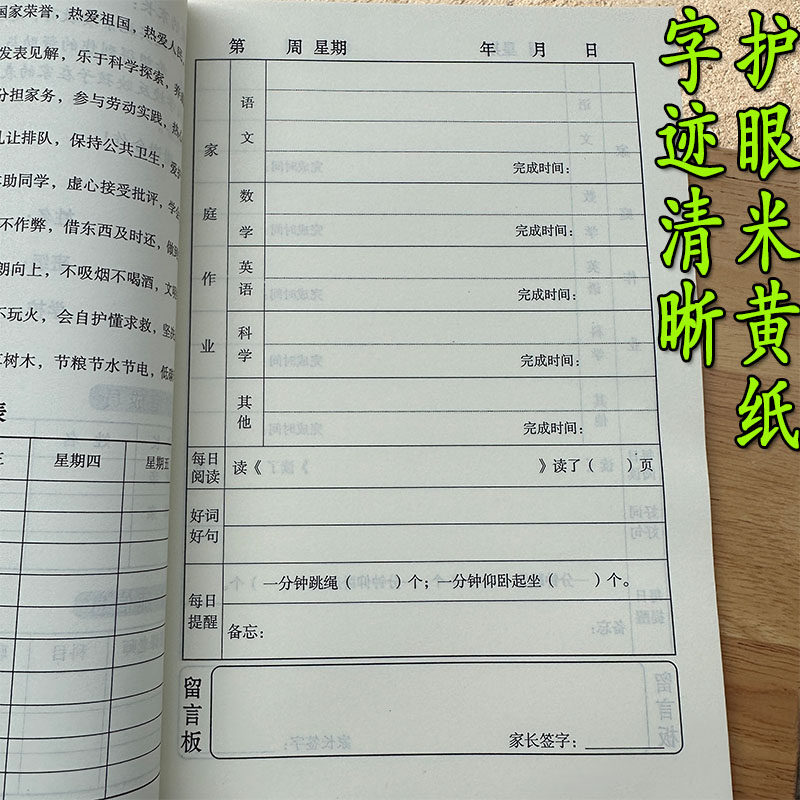 国家荣誉，热爱祖国，热爱人民，
发表见解，乐于科学探索，养
分担家务，参与劳动实践，热
礼让排队，保持公共卫生，爱
助同学，虚心接受批评，学会
不作弊，借东西及时还，做到
朗向上，不吸烟不喝酒，文明
不玩火，会自护懂求救，坚决
树木，节粮节水节电，低碳
表
三 星期四 星期五
第 周 星期 年 月 日
家庭作业
语文
完成时间：
数学
完成时间：
英语
完成时间：
科学
完成时间：
其他
完成时间：
每日阅读
读《 》读了（ ）页
好词好句
每日提醒
一分钟跳绳（ ）个；一分钟仰卧起坐（ ）个。
备忘：
留言板
家长签字：
护眼米黄纸
字迹清晰